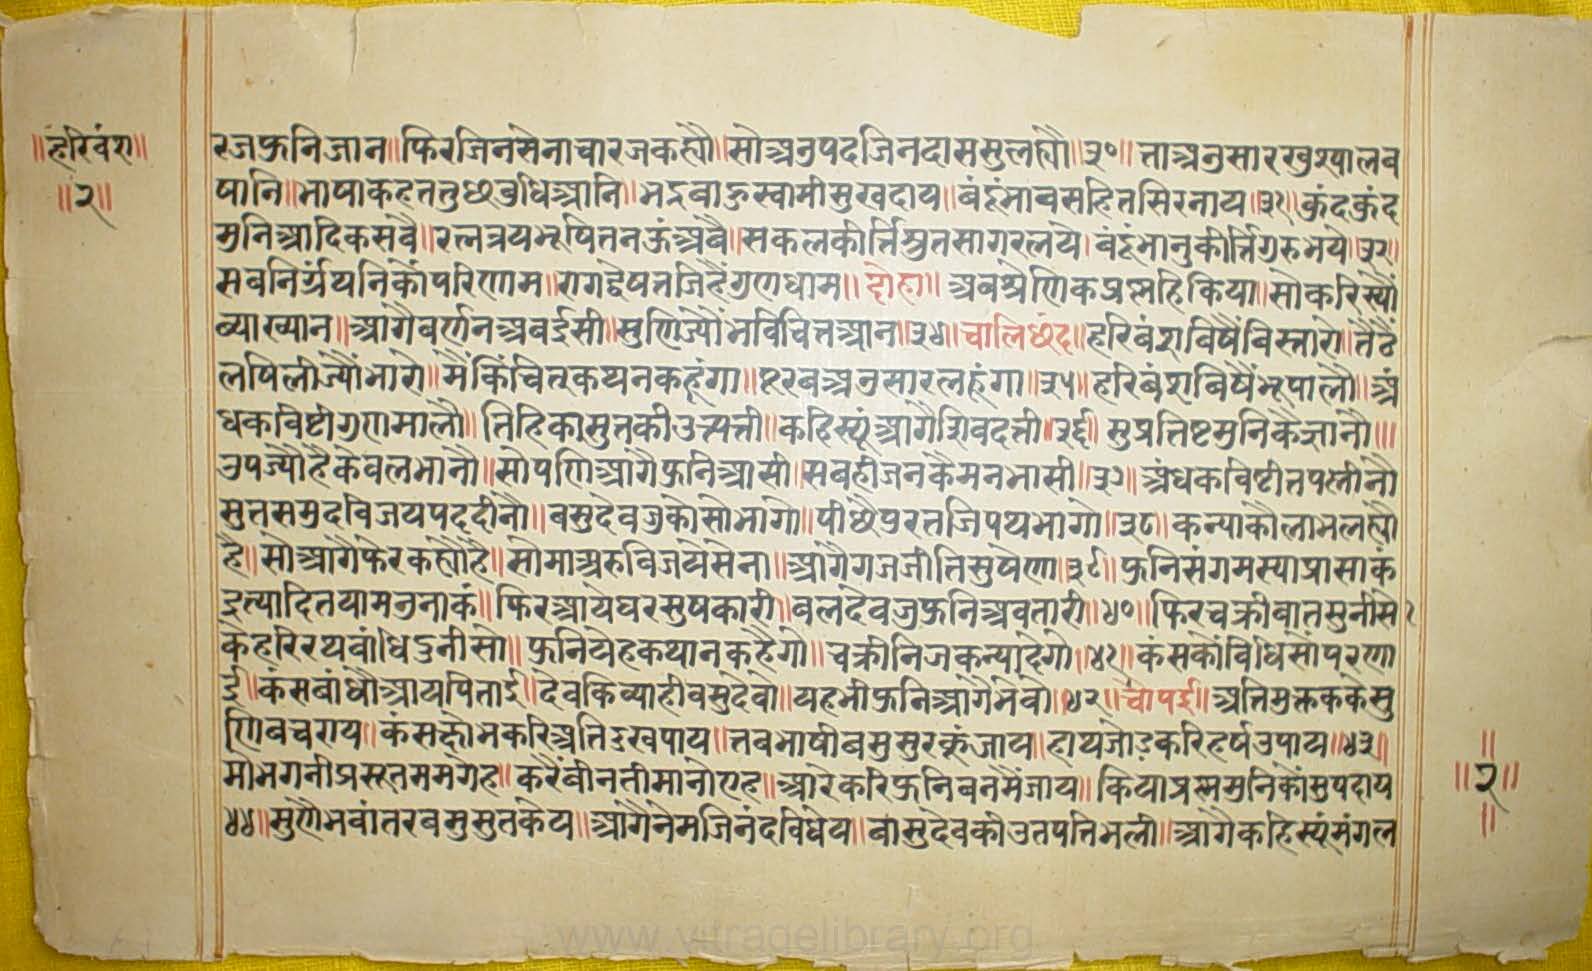 ॥हरिवंश॥
॥२॥
रजफुनिजान॥फिरजिनसेनाचारजकह्यौ॥सोअनुपदजिनदाससुलह्यौ॥३०॥ताअनुसारखुश्यालव
षानि॥भाषाकहततुछबुधिआनि॥भद्रबाहुस्वामीसुखदाय॥बंदूंभावसहितसिरनाय॥३१॥कुंदकुंद
मुनिआदिकसबै॥रत्नत्रयभूषिततनऊंअबै॥सकलकीर्त्तिश्रुतसागरलये।बंदूंभानुकीर्त्तिगुरुभये।३२।
सबनिर्ग्रंथनिकौंपरिणाम॥रागद्वेषतजिहैगुणधाम॥दोहा॥अबश्रेणिकप्रश्नहिकिया॥सोकरिस्यौं
व्याख्यान॥आगैवर्णनअबईसी॥सुणिज्यौंभविचित्तआन॥३४॥चालिछंद॥हरिबंशविषैंविस्तारो॥तैठै
लषिलीज्यौंभारो॥मैंकिंचित्कथनकहूंगा॥रबअनुसारलहूंगा॥३५॥हरिबंशबिषैंभूपालौ॥अं
धकविष्टीगुणमालौ॥तिहिकासुतकीउत्पत्ती॥कहिस्यूंआगैशिवदत्ती॥३६॥सुप्रतिष्टमुनिकैज्ञानौ॥
उपज्यौहैकेवलभानौ॥सोपणिआगैफुनिआसी॥सबहीजनकैमनभासी॥३७॥अंधकविष्टीतपलीनो
सुतसमुदविजयपददीनौ॥वसुदेवजुकोसोभागो॥पीछैपुरतजिपथभागो॥३८॥कन्याकौलाभलह्यौ
है॥सोआगैफेरकह्यौहै॥सोमाअरुविजयेसेना॥आगैगजजीतिसुषेणा॥३९॥फुनिसंगमस्याप्रासाकं
इत्यादितयामनुनाकं॥फिरआयेघरसुषकारी॥बलदेवजुफुनिअवतारी॥४०॥फिरचक्रीबातसुनीसे
कहरिरथबांधिउनीसो॥फुनियेहकथानकहैगौ॥चक्रीनिजकन्यादेगौ॥४१॥कंसकौंविधिसौंपरणा
ई॥कंसबांधौआयपिताई॥देवकिव्याहीवसुदेवो॥यहभीफुनिआगैभेवो॥४२॥चौपई॥अतिमुक्तककेसु
णिबचराय॥कंसक्षोभकरिअतिदुखपाय॥तबभाषीबसुसुरकूंजाय॥हाथजोड़करिहर्षउपाय॥४३॥
मोभगनीप्रसूतममगेह॥करैंवीनतीमानोएह॥आरेकरिफुनिबनमैंजाय॥कियाप्रश्नमुनिकौंसुषदाय
४४॥सुणैभवांतरबसुसुतकेय॥आगैनेमजिनंदविधेय॥वासुदेवकीउतपतिभली॥आगैकहिस्यूंमंगल
॥
॥२॥
॥
www.vitragelibrary.org